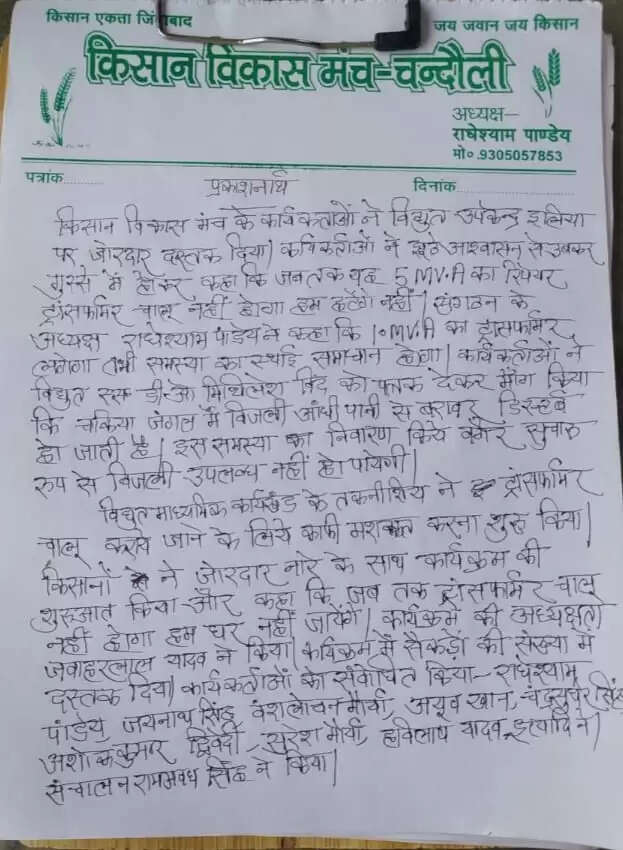 किसान एकता जिंदाबाद
जय जवान जय किसान
किसान विकास मंच-चन्दौली
अध्यक्ष-
राधेश्याम पाण्डेय
मो० 9305057853
पत्रांक............
दिनांक............
प्रकाशनार्थ
किसान विकास मंच के कार्यकर्ताओं ने विद्युत उपकेन्द्र इलिया
पर जोरदार दस्तक दिया। कार्यकर्ताओं ने झूठे आश्वासन से उबकर
गुस्से में होकर कहा कि जब तक यह 5 MV.A का रिपेयर
ट्रांसफार्मर चालू नहीं होगा हम हटेंगे नहीं। संगठन के
अध्यक्ष राधेश्याम पांडेय ने कहा कि 10 MV.A का ट्रांसफार्मर
लगेगा तभी समस्या का स्थाई समाधान होगा। कार्यकर्ताओं ने
विद्युत एस डी.ओ मिथिलेश बिंद को पत्रक देकर माँग किया
कि चकिया जंगल में बिजली आंधी पानी से बराबर डिस्टर्ब
हो जाती है। इस समस्या का निवारण किये बगैर सुचारू
रुप से बिजली उपलब्ध नहीं हो पायेगी।
विद्युत माध्यमिक कार्यखंड के तकनीशियन ने ट्रांसफार्मर
चालू कराये जाने के लिये काफी मशक्कत करना शुरू किया।
किसानों ने जोरदार नारे के साथ कार्यक्रम की
शुरुआत किया और कहा कि जब तक ट्रांसफार्मर चालू
नहीं होगा हम घर नहीं जायेंगे। कार्यक्रम की अध्यक्षता
जवाहरलाल यादव ने किया। कार्यक्रम में सैकड़ों की संख्या में
दस्तक दिया। कार्यकर्ताओं को संबोधित किया- राधेश्याम
पांडेय, जयनाथ सिंह, वंशलोचन मौर्या, अयूब खान, चंद्रसुधर सिंह
अशोक कुमार द्विवेदी, सुरेश मौर्या, यादव, इत्यादि ने।
संचालन रामअवध सिंह ने किया।